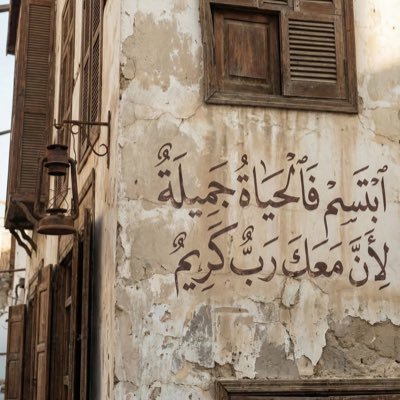 ٱبْتَسِمْ فَٱلْحَيَاةُ جَمِيلَةٌ
لِأَنَّ مَعَكَ رَبٌّ كَرِيمٌ